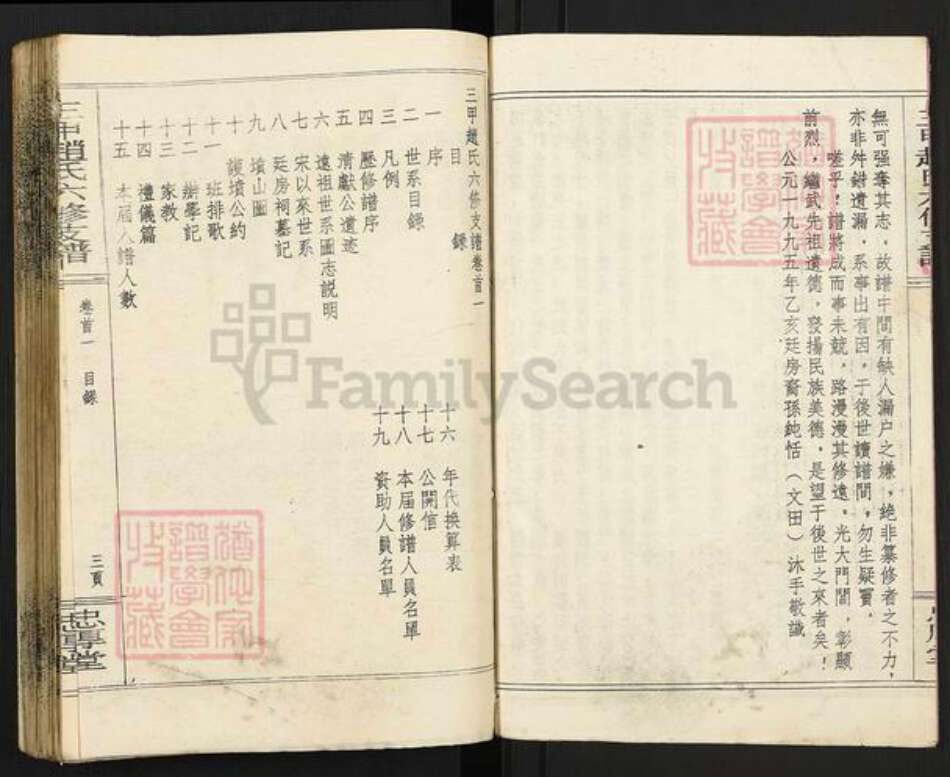 無可强奪其志，故譜中間有缺人漏户之嫌，绝非纂修者之不力，
亦非舛錯遺漏，系事出有因，于後世讀譜間，勿生疑竇。
嗟乎！譜將成而事未兢，路漫漫其修遠。光大門閭，彰顯
前烈，繼武先祖遺德，發揚民族美德，是望于後世之來者矣！
公元一九九五年乙亥廷房裔孫純恬（文田）沐手敬識
三甲趙氏六修支譜卷首一
目錄
一 序
二 世系目録
三 凡例
四 歷修譜序
五 清獻公遺迹
六 遠祖世系圖志説明
七 宋以來世系
八 廷房祠墓記
九 墳山圖
十 護墳公約
十一 班排歌
十二 辦學記
十三 家教
十四 禮儀篇
十五 本届入譜人數
十六 年代换算表
十七 公開信
十八 本届修譜人員名單
十九 資助人員名單
三甲趙氏六修支譜
卷首一 目録
三頁
忠厚堂
譜學會
收藏
FamilySearch